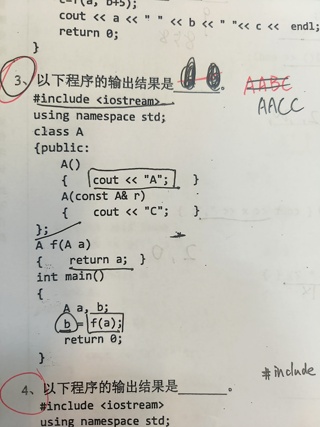 c=f(a, b+5);
cout << a << " " << b << " "<< c << endl;
return 0;
}
3、以下程序的输出结果是______。 AABC
#include <iostream> AACC
using namespace std;
class A
{public:
A()
{ cout << "A"; }
A(const A& r)
{ cout << "C"; }
};
A f(A a)
{ return a; }
int main()
{
A a, b;
b = f(a);
return 0;
}
#include
4、以下程序的输出结果是______。
#include <iostream>
using namespace std;